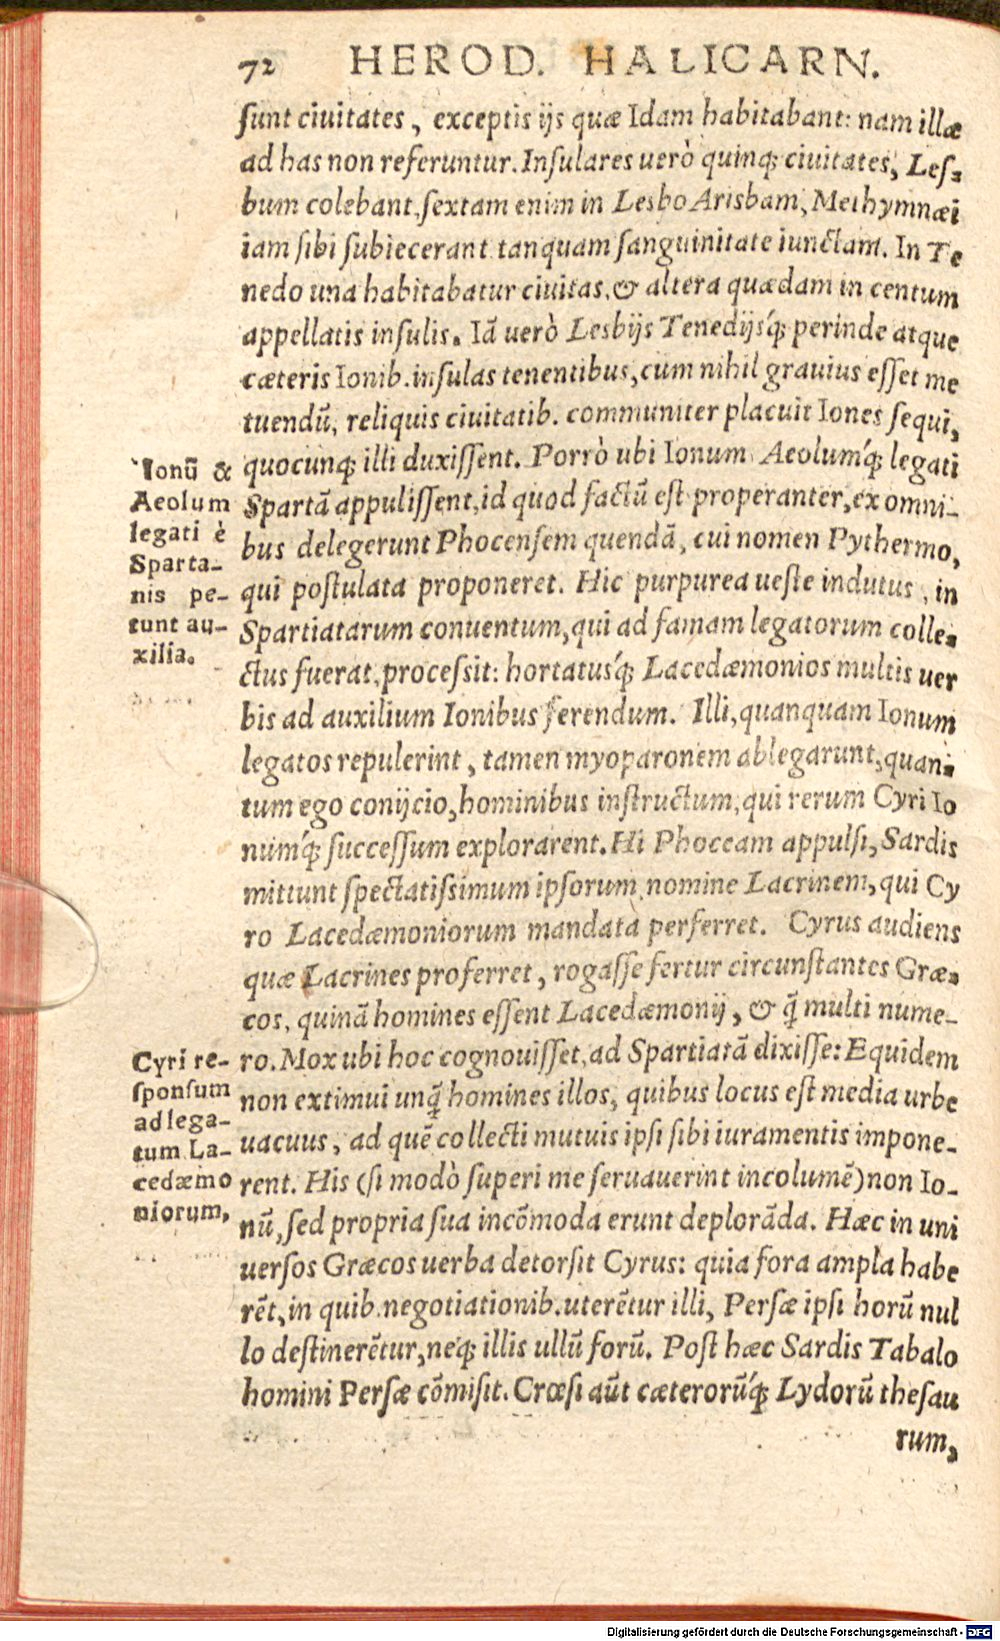 72 HEROD. HALICARN.
sunt ciuitates, exceptis ijs quæ Idam habitabant: nam illæ
ad has non referuntur. Insulares uerò quinq; ciuitates, Les-
bum colebant, sextam enim in Lesbo Arisbam, Methymnæi
iam sibi subiecerant tanquam sanguinitate iunctam. In Te
nedo una habitabatur ciuitas, & altera quædam in centum
appellatis insulis. Iã uerò Lesbijs Tenedijsq́; perinde atque
cæteris Ionib. insulas tenentibus, cum nihil grauius esset me
tuendũ, reliquis ciuitatib. communiter placuit Iones sequi,
quocunq; illi duxissent. Porrò ubi Ionum Aeolumq́; legati
Spartã appulissent, id quod factũ est properanter, ex omni-
bus delegerunt Phocensem quendã, cui nomen Pythermo,
qui postulata proponeret. Hic purpurea ueste indutus, in
Spartiatarum conuentum, qui ad famam legatorum colle-
ctus fuerat, processit: hortatusq́; Lacedæmonios multis uer
bis ad auxilium Ionibus ferendum. Illi, quanquam Ionum
legatos repulerint, tamen myoparonem ablegarunt, quan-
tum ego conijcio, hominibus instructum, qui rerum Cyri Io
númq́; successum explorarent. Hi Phoceam appulsi, Sardis
mittunt spectatissimum ipsorum nomine Lacrinem, qui Cy
ro Lacedæmoniorum mandata perferret. Cyrus audiens
quæ Lacrines proferret, rogasse fertur circunstantes Græ-
cos, quinã homines essent Lacedæmonij, & q̃ multi nume-
ro. Mox ubi hoc cognouisset, ad Spartiatã dixisse: Equidem
non extimui unq̃ homines illos, quibus locus est media urbe
uacuus, ad quẽ collecti mutuis ipsi sibi iuramentis impone-
rent. His (si modò superi me seruauerint incolumẽ) non Io-
nũ, sed propria sua incõmoda erunt deplorãda. Hæc in uni
uersos Græcos uerba detorsit Cyrus: quia fora ampla habe
rẽt, in quib. negotiationib. uterẽtur illi, Persæ ipsi horũ nul
lo destinerẽtur, neq́; illis ullũ forũ. Post hæc Sardis Tabalo
homini Persæ cõmisit. Crœsi aũt cæterorũq́; Lydorũ thesau
rum,
Ionũ &
Aeolum
legati è
Sparta-
nis pe-
tunt au-
xilia.
Cyri re-
sponsum
ad lega-
tum La-
cedæmo
niorum,
Digitalisierung gefördert durch die Deutsche Forschungsgemeinschaft - DFG